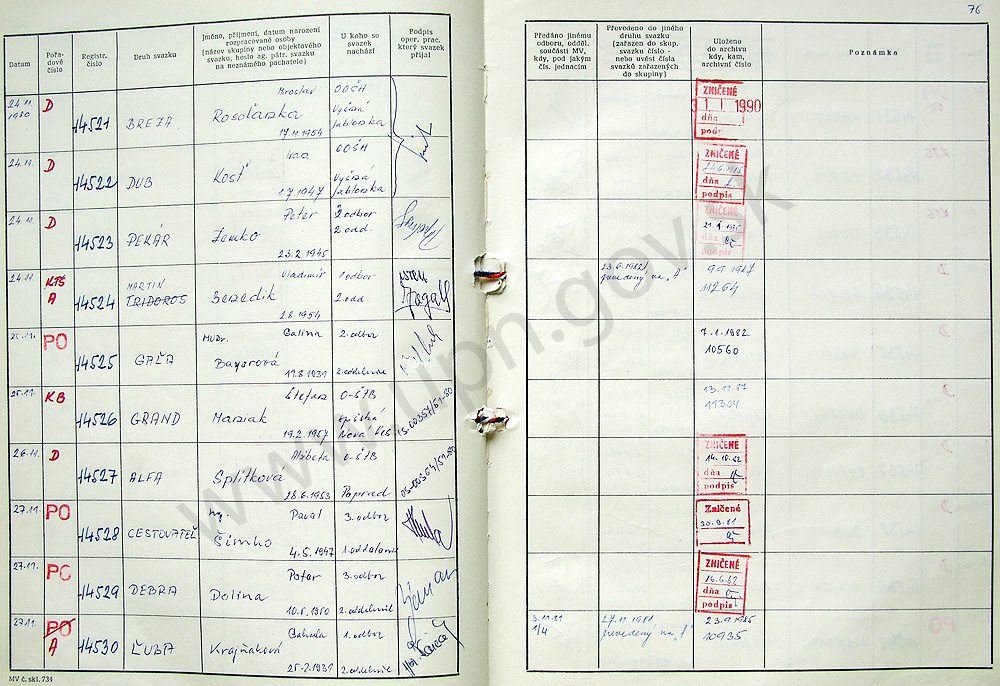 76
Datum
Pořadové číslo
Registr. číslo
Druh svazku
Jméno, příjmení, datum narození
rozpracované osoby
(název skupiny nebo objektového
svazku, heslo ag. pátr. svazku
na neznámého pachatele)
U koho se
svazek
nachází
Podpis
oper. prac.
který svazek
přijal
Předáno jinému
odboru, odděl.
součásti MV,
kdy, pod jakým
čís. jednacím
Převedeno do jiného
druhu svazku
(zařazen do skup.
svazku číslo -
nebo uvést čísla
svazků zařazených
do skupiny)
Uloženo
do archivu
kdy, kam,
archivní číslo
Poznámka
24.11. 1980 D 14521 BREZA Miroslav OOŠH
Vyčísá
17.11.1954
ZNIČENÉ
1990
dňa
podpis
24.11. D 14522 DUB Ivan OOŠH
Kosť
1.7.1947
ZNIČENÉ
dňa
podpis
24.11. D 14523 PEKÁR Peter 2. odbor
Zemko 2. odd.
23.2.1945
ZNIČENÉ
dňa
podpis
24.11. KTŠ A 14524 MARTIN Vladimír 1. odbor
TRIDOROS Benedik 2. odd.
2.8.1954
23.6.1982 prevedený na "A"
9.9.1987
11264
25.11. PO 14525 GAĽA MUDr. Galina 2. odbor
Bayerová
17.8.1931 2. oddelenie
7.1.1982
10560
25.11. KB 14526 GRAND Štefan O-ŠTB
Marsiak spišská
19.2.1957 Nová Ves
13.11.87
11304
26.11. D 14527 ALFA Alžbeta O-ŠTB
Splitková
28.6.1953 Poprad
ZNIČENÉ
14.10.82
dňa
podpis
27.11. PO 14528 CESTOVATEĽ Ing. Pavol 3. odbor
Šimko
4.5.1947 1. oddelenie
Zničené
30.9.81
27.11. PO 14529 DEBRA Peter 3. odbor
Dolina
10.5.1950 2. oddelenie
ZNIČENÉ
16.6.82
dňa
podpis
27.11. PO A 14530 ĽUBA 1. odbor
Krajňaková
25.2.1931 2. oddelenie
3.11.81
1/4
27.11.1981
prevedený na "A"
23.9.1985
10935
MV č. skl. 734
www.upn.gov.sk